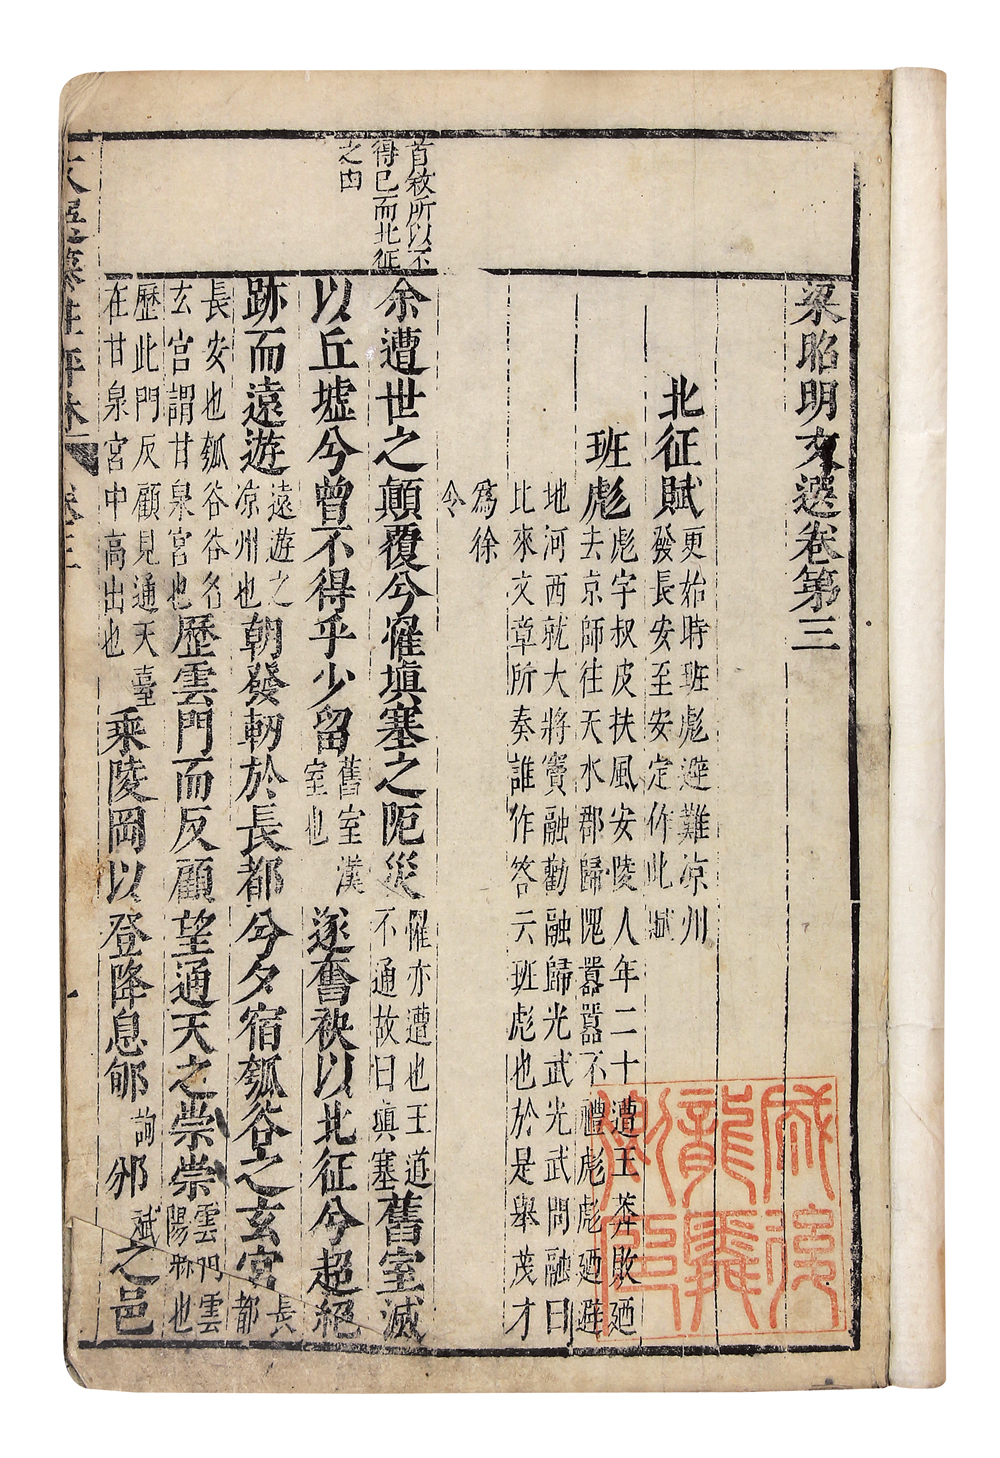 梁昭明文選卷第三
北征賦
更始時班彪避難凉州
發長安至安定作此賦
班彪
彪字叔皮扶風安陵人年二十遭王莽敗廼
去京師往天水郡歸隗囂囂不禮彪彪廼避
地河西就大將竇融勸融歸光武光武問融曰
比來文章所奏誰作答云班彪也於是舉茂才
爲徐
令
首敘所以不
得已而北征
之由
余遭世之顛覆兮罹塡塞之阨災
罹亦遭也王道
不通故曰塡塞
舊室滅
以丘墟兮曾不得乎少留
舊室漢
室也
遂奮袂以北征兮超絕
跡而遠遊
遠遊之
凉州也
朝發軔於長都兮夕宿瓠谷之玄宮
長都
長安也瓠谷谷名
玄宮謂甘泉宮也
歷雲門而反顧望通天之崇崇
雲門雲
陽縣也
歷此門反顧見通天臺
在甘泉宮中高出也
乘陵岡以登降息郇
詢
邠
斌
之邑
卷三
一